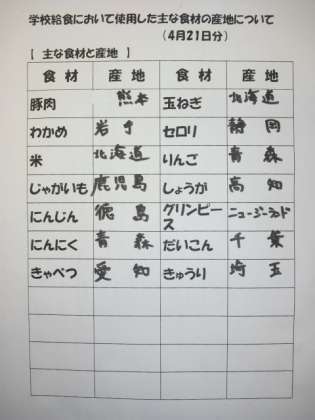 学校給食において使用した主な食材の産地について
（4月21日分）
【 主な食材と産地 】
食 材 産 地 食 材 産 地
豚肉 熊本 玉ねぎ 北海道
わかめ 岩手 セロリ 静岡
米 北海道 りんご 青森
じゃがいも 鹿児島 しょうが 高知
にんじん 徳島 グリンピース ニュージーランド
にんにく 青森 だいこん 千葉
きゃべつ 愛知 きゅうり 埼玉